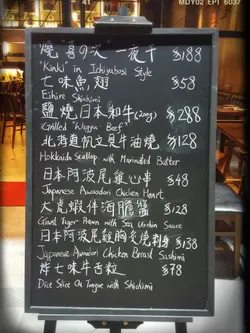 MDY02 EPT 6037
燒"喜の次"一夜干 $188
"Kinki" in Ichiyaboshi Style
七味魚翅 $58
Eihire Shichimi
鹽燒日本和牛(2oz) $288
Grilled "Wagyu Beef"
北海道帆立貝牛油燒 $128
Hokkaido Scallop with Marinated Butter
日本阿波尾雞心串 $48
Japanese Awaodori Chicken Heart
大虎蝦伴海膽醬 $128
Giant Tiger Prawn with Sea Urchin Sauce
日本阿波尾雞胸炙燒刺身 $138
Japanese Awaodori Chicken Breast Sashimi
炸七味牛舌粒 $78
Dice Slice Ox Tongue with Shichimi